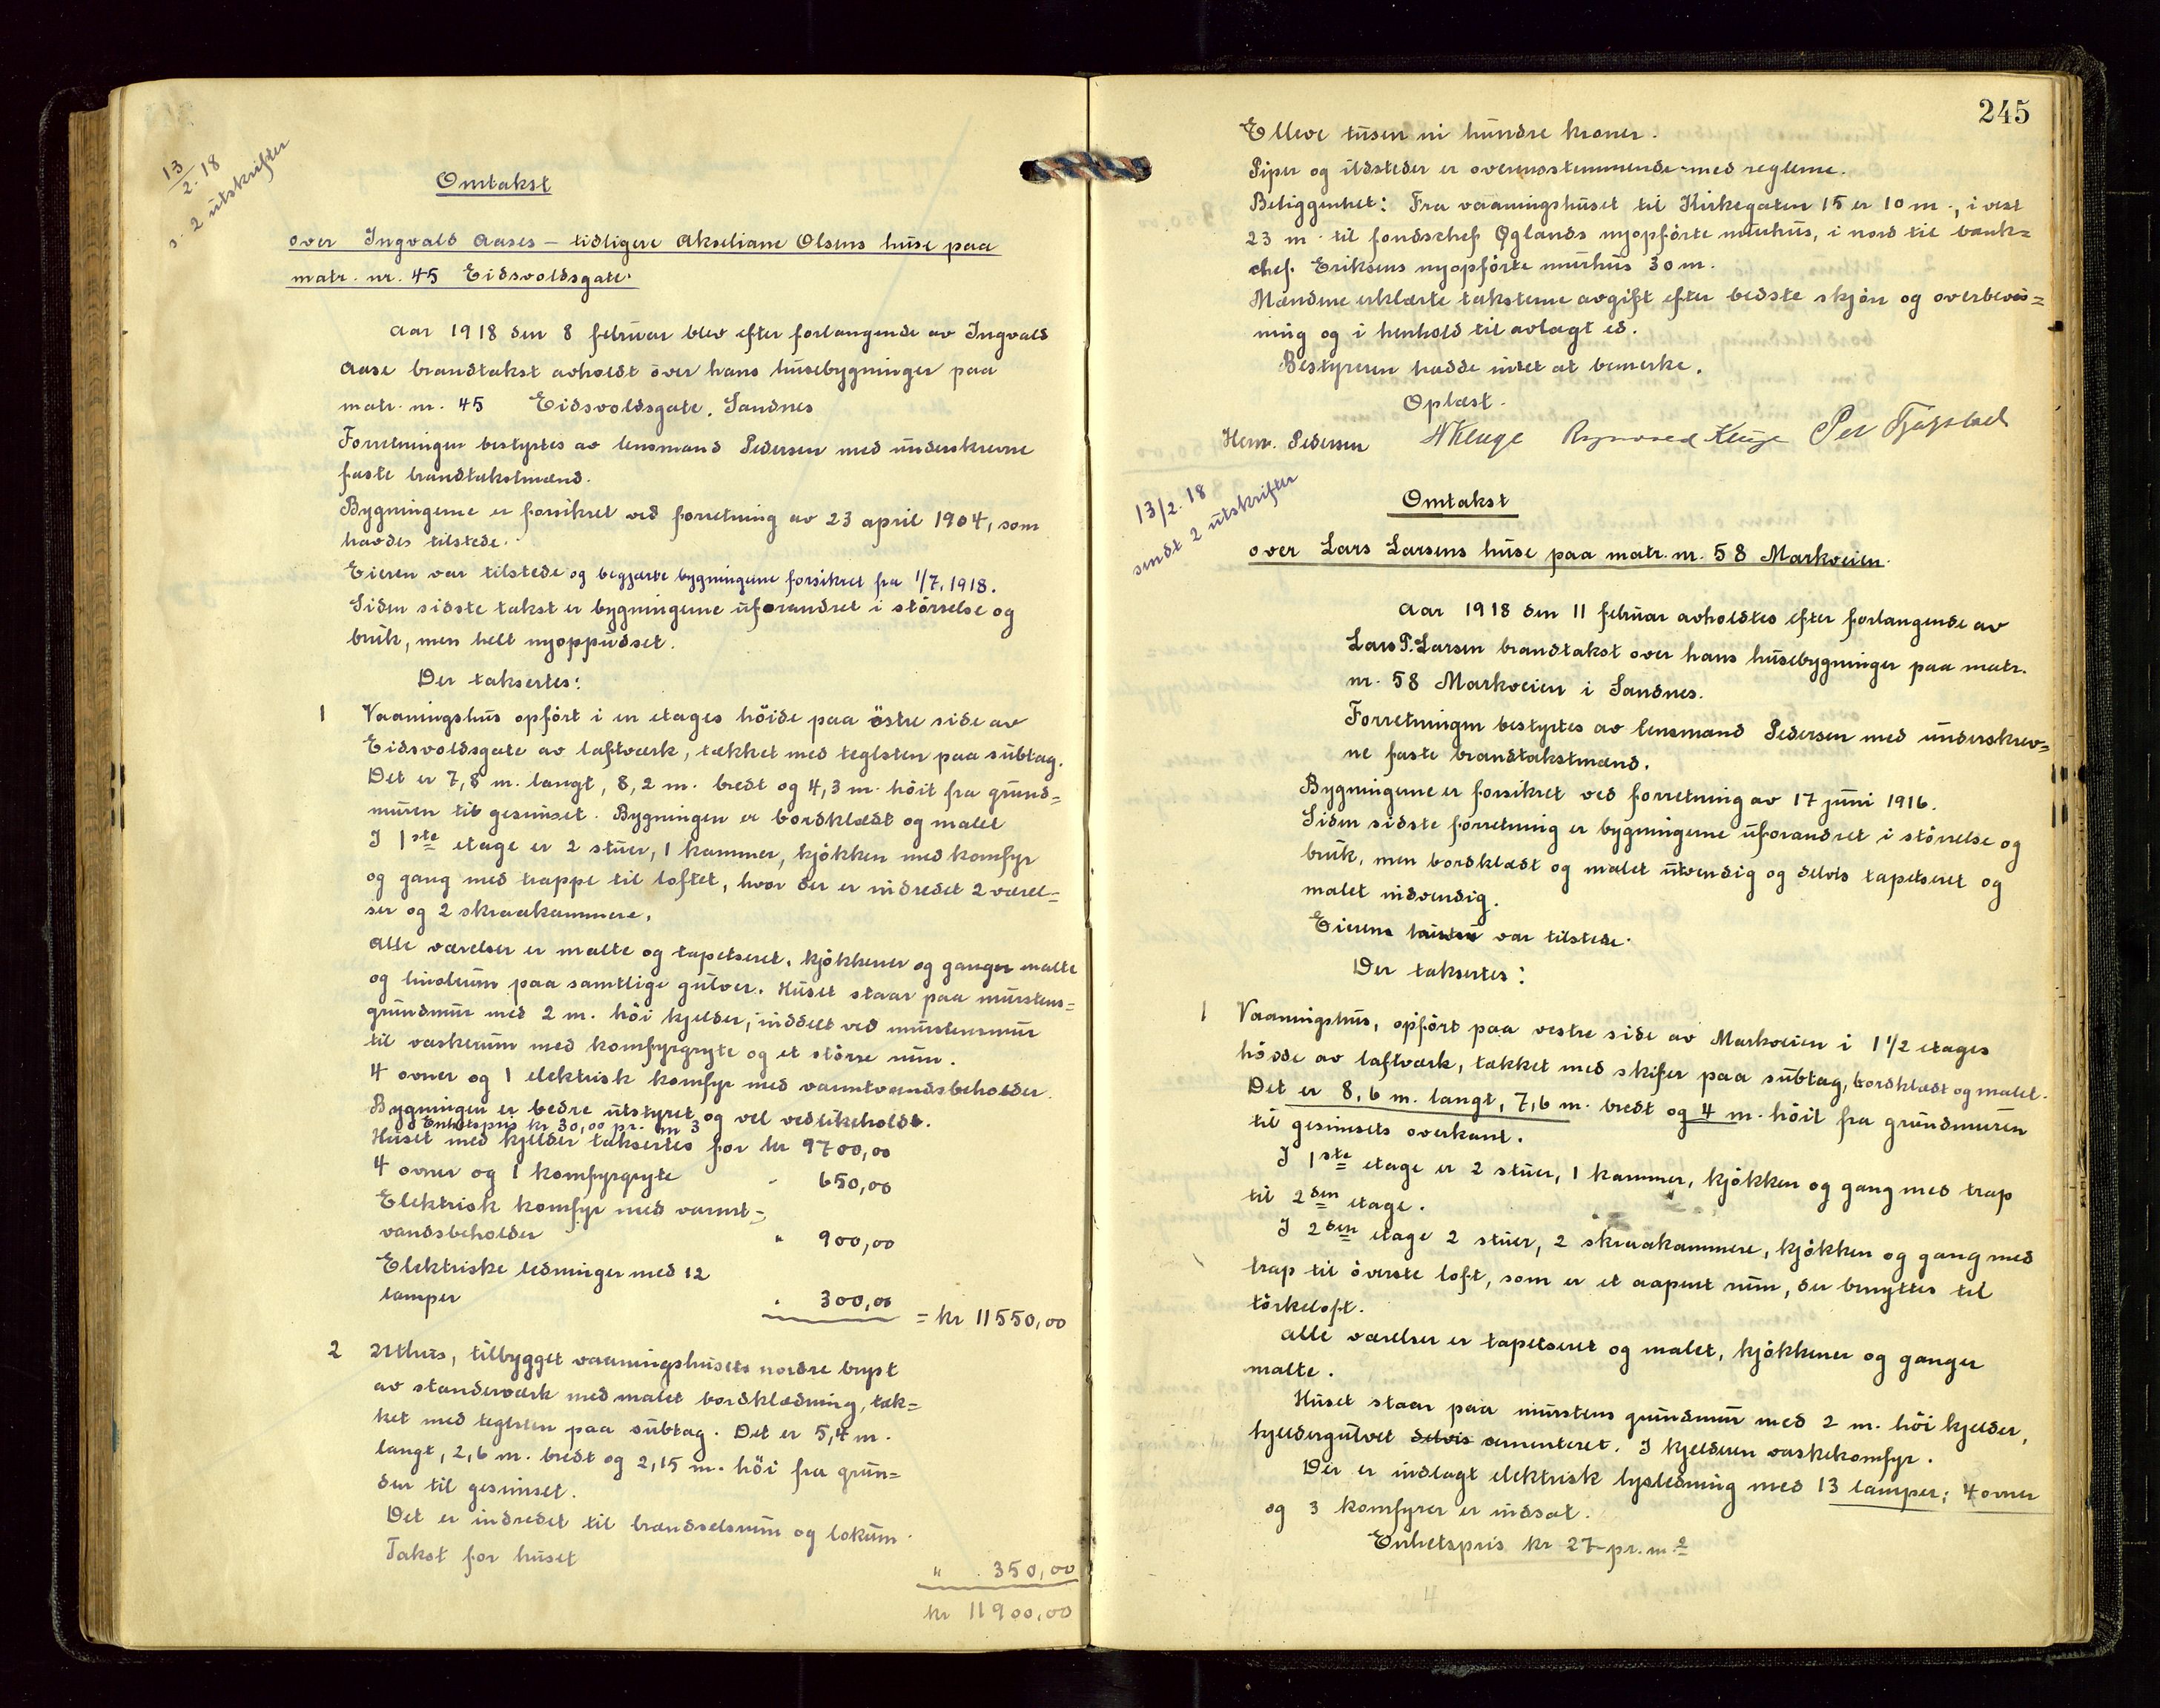 13/2. 18
s. 2 utskrifter
Omtakst
over Ingvald Aases – tidligere Akseliane Olsens huse paa
matr. nr. 45 Eidsvoldsgate.
Aar 1918 den 8 februar blev efter forlangende av Ingvald
Aase brandtakst avholdt över hans husebygninger paa
matr. nr. 45 Eidsvoldsgate, Sandnes
Forretningen bestyrtes av lensmand Pedersen med underskrevne
faste brandtakstmænd.
Bygningerne er forsikret ved forretning av 23 april 1904, som
havdes tilstede.
Eieren var tilstede og begjærte bygningerne forsikret fra 1/7. 1918.
Siden sidste takst er bygningerne uforandret i störrelse og
bruk, men helt nyoppudset.
Der taksertes:
1 Vaaningshus opfört i en etages höide paa östre side av
Eidsvoldsgate av laftværk, tækket med teglsten paa subtag.
Det er 7,8 m. langt, 8,2 m. bredt og 4,3 m. höit fra grund=
muren til gesimset. Bygningen er bordklædt og malet
I 1ste etage er 2 stuer, 1 kammer, kjökken med komfyr
og gang med trappe til loftet, hvor der er indredet 2 værel=
ser og 2 skraakammere.
Alle værelser er malte og tapetseret. Kjökkener og ganger malte
og linoleum paa samtlige gulver. Huset staar paa murstens=
grundmur med 2 m. höi kjelder, inddelt ved murstensmur
til vaskerum med komfyrgryte og et större rum.
4 ovner og 1 elektrisk komfyr med varmtvandsbeholder.
Bygningen er bedre utstyret og vel vedlikeholdt.
Enhetspris kr 30,00 pr. m 3
Huset med kjelder taksertes for kr 9700,00
4 ovner og 1 komfyrgryte - 650,00
Elektrisk komfyr med varmt=
vandsbeholder " 900,00
Elektriske ledninger med 12
lamper " 300,00 = kr 11550,00
2 Uthus, tilbygget vaaningshusets nordre bryst
av standerværk med malet bordklædning, tæk=
ket med teglsten paa subtag. Det er 5,4 m.
langt, 2,6 m. bredt og 2,15 m. höi fra grun=
den til gesimset.
Det er indredet til brændselsrum og lokum.
Takst for huset " 350,00
kr 11900,00
245
Elleve tusen ni hundre kroner.
Piper og ildsteder er overensstemmende med reglerne.
Beliggenhet: Fra vaaningshuset til Kirkegaten 15 er 10 m., i vest
23 m. til fondschef Øglands nyopförte murhus, i nord til bank=
chef. Eriksens nyopförte murhus 30 m.
Mændene erklærte taksterne avgift efter bedste skjön og overbevis=
ning og i henhold til avlagt ed.
Bestyreren hadde intet at bemerke.
Oplæst.
Henr. Pedersen N Kluge Kluge Per
13/2. 18
sendt 2 utskrifter
Omtakst
over Lars Larsens huse paa matr. nr. 58 Markveien.
Aar 1918 den 11 februar avholdtes efter forlangende av
Lars P. Larsen brandtakst över hans husebygninger paa matr.
nr. 58 Markveien i Sandnes.
Forretningen bestyrtes av lensmand Pedersen med underskrev=
ne faste brandtakstmænd.
Bygningerne er forsikret ved forretning av 17 juni 1916.
Siden sidste forretning er bygningerne uforandret i störrelse og
bruk, men bordklædt og malet utvendig og delvis tapetseret og
malet indvendig.
Eierens hustru var tilstede.
Der taksertes:
1 Vaaningshus, opfört paa vestre side av Markveien i 1 1/2 etages
höide av laftværk, tækket med skifer paa subtag, bordklædt og malet.
Det er 8,6 m. langt, 7,6 m. bredt og 4 m. höit fra grundmuren
til gesimsets overkant.
I 1ste etage er 2 stuer, 1 kammer, kjökken og gang med trap
til 2den etage.
I 2den etage 2 stuer, 2 skraakammere, kjökken og gang med
trap til överste loft, som er et aapent rum, der benyttes til
törkeloft.
Alle værelser er tapetseret og malet, kjökkener og ganger
malte.
Huset staar paa murstens grundmur med 2 m. höi kjelder,
kjeldergulvet delvis sementeret. I kjelderen vaskekomfyr.
Der er indlagt elektrisk lysledning med 13 lamper; 4 ovner
og 3 komfyrer er indsat.
Enhetspris kr 27 – pr. m 2